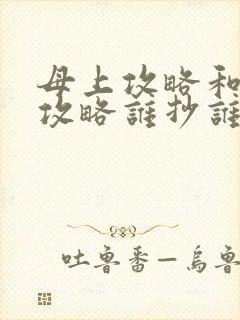 母上攻略和
攻略誰抄誰
吐魯番—烏魯